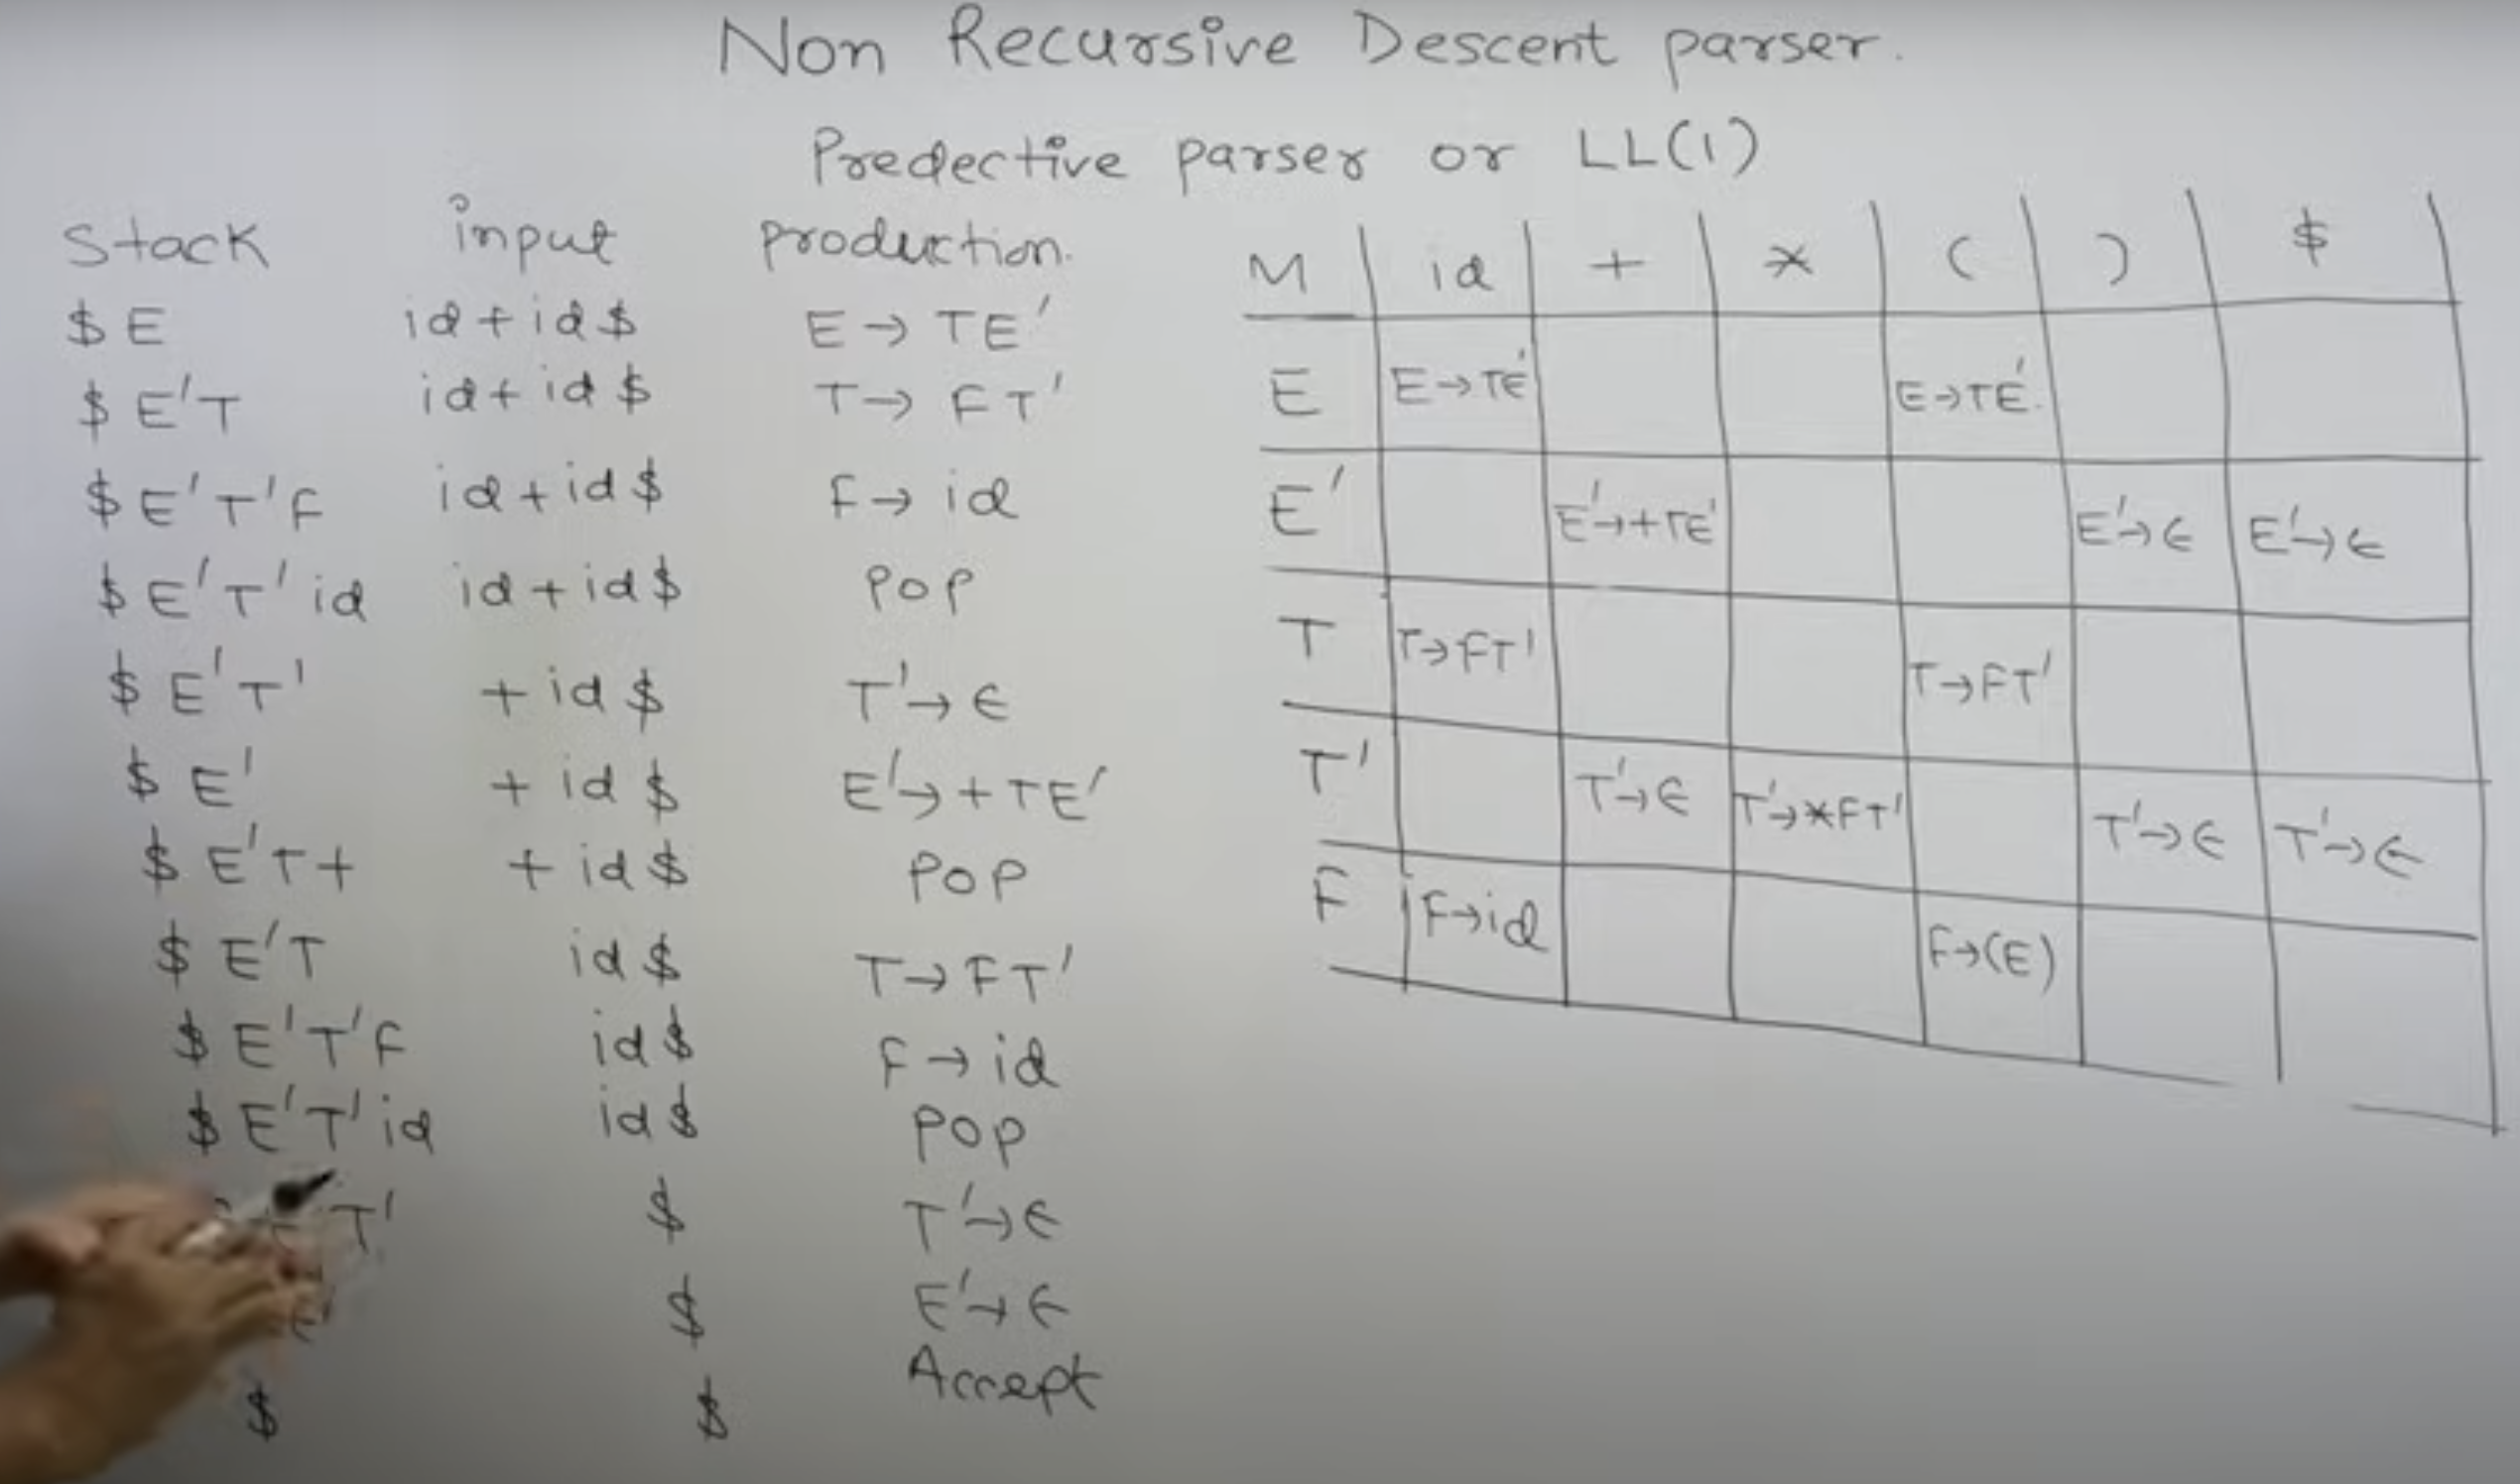 Non Recursive Descent parser.
Predective parser or LL(1)
Stack input production.
$ E id+id$ E→TE'
$ E'T id+id$ T→FT'
$ E'T'F id+id$ F→id
$ E'T'id id+id$ POP
$ E'T' +id$ T'→∈
$ E' +id$ E'→+TE'
$ E'T+ +id$ POP
$ E'T id$ T→FT'
$ E'T'F id$ F→id
$ E'T'id id$ POP
T' $ T'→∈
E' $ E'→∈
$ $ Accept
M id + * ( ) $
E E→TE' E→TE'.
E' E'→+TE' E'→∈ E'→∈
T T→FT' T→FT'
T' T'→∈ T'→*FT' T'→∈ T'→∈
F F→id F→(E)